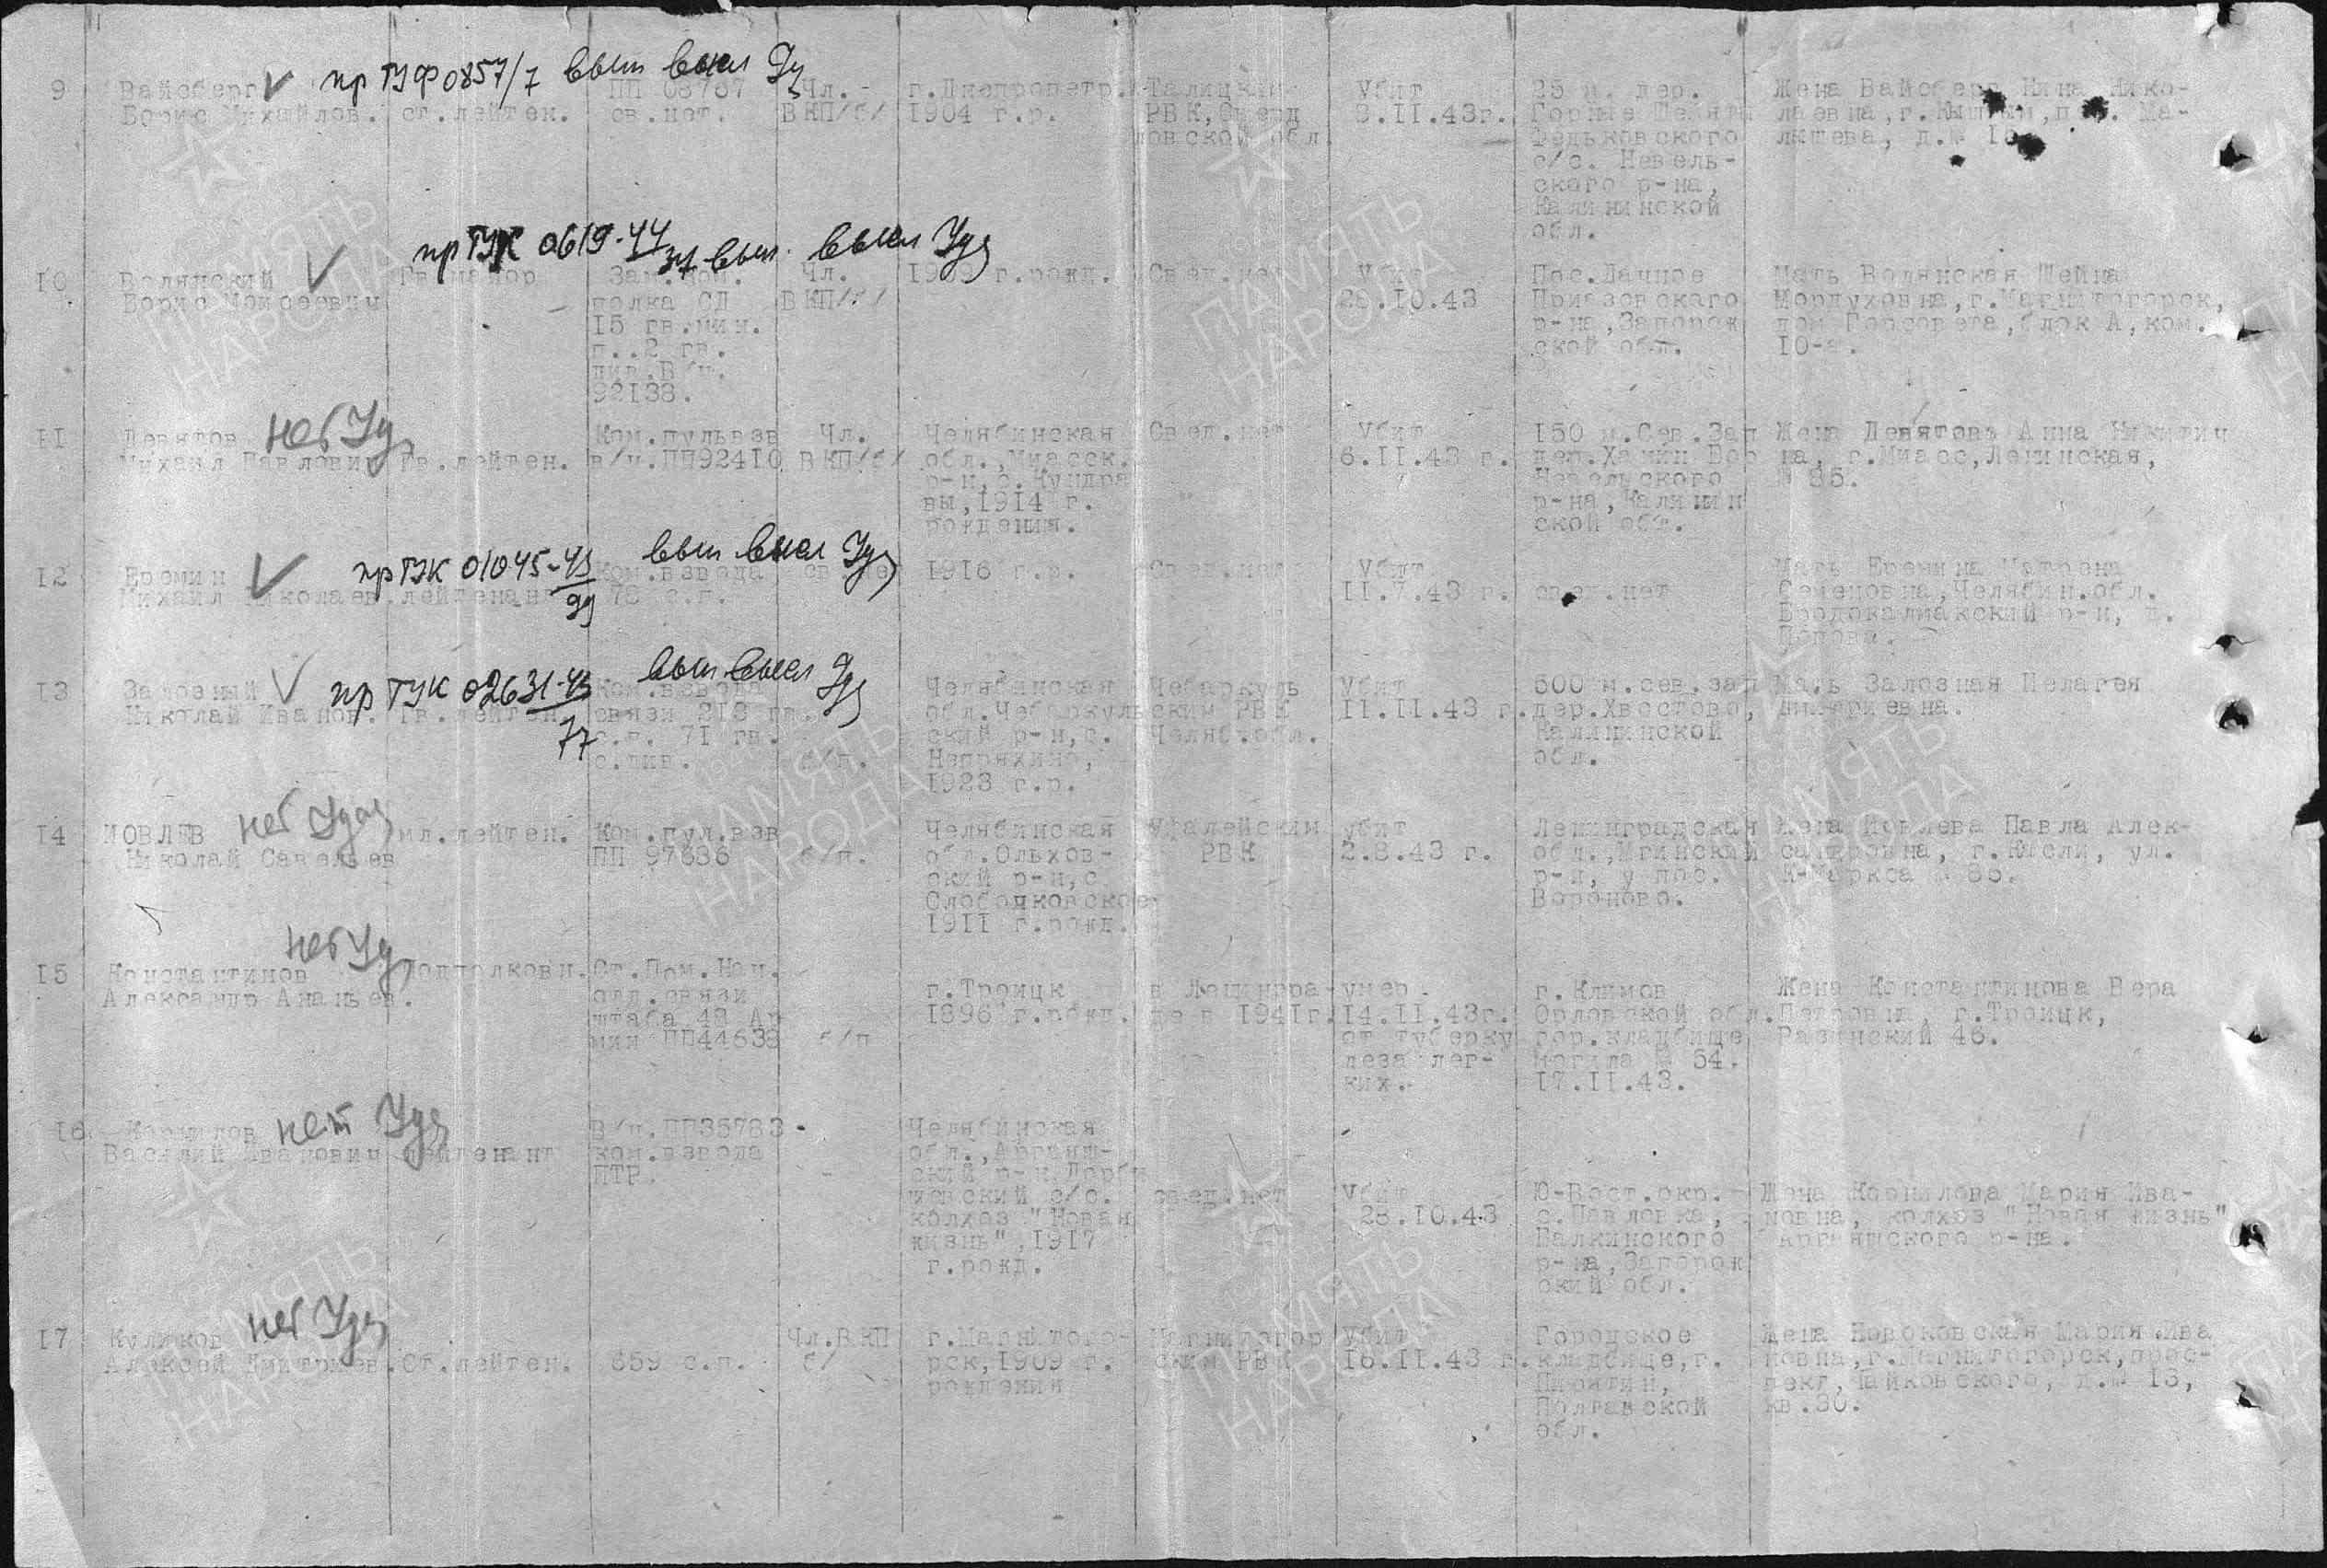 пр ГУФ 0857/7 вып высл Уд
9 Вайсберг ПП 08787 Чл. г.Днепропетр. Талицким Убит 25 м. дер. Жена Вайсберг Нина Нико-
Борис Михайлов. ст.лейтен. св.нет. ВКП/б/ 1904 г.р. РВК, Сверд 8.II.43г. Горные лаевна, г.Кыштым, Ма-
ловской обл. Федьковского лышева, д.№
с/с. Невель-
ского р-на,
Калининской
обл.
пр ГУК 0619-44 вып. высл Уд
10 Волянский Гв.майор Зам.Ком. Чл. 1909 г.рожд. Свед.нет Убит Пос.Дачное Мать Волянская Шейна
Борис Моисеевич полка СД ВКП/б/ 28.10.43 Приазовского Мордуховна, г.Магнитогорск,
15 гв.мин. р-на, Запорож дом Горсовета, блок А, ком.
п..2 гв. ской обл. 10-а.
див.В/ч.
92138.
нет Уд
11 Девятов Ком.пульвзв Чл. Челябинская Свед.нет Убит 150 м.Сев.Зап Жена Девятова Анна Никитич
Михаил Павлович Гв.лейтен. в/ч.ПП92410 ВКП/б/ обл.,Миасск. 6.II.43 г. дер. на, г.Миасс,Ленинская,
р-н,с.Кундра Невельского № 85.
вы,1914 г. р-на,Калинин
рождения. ской обл.
пр ГУК 01045-43 вып высл Уд
99
12 Еремин Ком.взвода св.нет 1916 г.р. Свед.нет Убит Мать Еремина Матрена
Михаил Николаев. лейтенант 78 с.п. 11.7.43 г. свед.нет Семеновна,Челябин.обл.
Бродокалмакский р-н,
пр ГУК 02631-43 вып высл Уд
77
13 Залозный Ком.взвода Челябинская Чебаркуль Убит 500 м.сев.зап Мать Залозная Пелагея
Николай Иванов. Гв.лейтен. связи 213 гв. обл.Чебаркуль ским РВК 11.II.43 г. дер.Хвостово, Дмитриевна.
с.п. 71 гв. ский р-н,с. Челяб.обл. Калининской
с.див. б/п. Непряхино, обл.
1923 г.р.
нет Уд
14 ИОВЛЕВ мл.лейтен. Ком.пул.взв Челябинская Уфалейским убит Ленинградская Жена Иовлева Павла Алек-
Николай Савельев ПП 97636 б/п. обл.Ольхов- РВК 2.8.43 г. обл.,Мгинский сандровна, ул.
ский р-н,с. р-н, у пос. К-Маркса
Слободчиковское Вороново.
1911 г.рожд.
нет Уд
15 Константинов подполковн. Ст.Пом.Нач.
Александр Ананьев. отд.связи г.Троицк в Ленингра- умер г.Климов Жена Константинова Вера
штаба 48 Ар 1896 г.рожд. де в 1941г. 14.II.43г. Орловской обл. Петровна, г.Троицк,
мии ПП44638 б/п от туберку гор.кладбище Разинский 46.
леза лег- могила № 54.
ких. 17.II.43.
нет Уд
16 Корнилов В/ч.ПП35783 Челябинская
Василий Иванович лейтенант ком.взвода обл.,Аргаяш-
ПТР. ский р-н
с/с. свед.нет Убит Ю-Вост.окр. Жена Корнилова Мария Ива-
колхоз "Новая 28.10.43 с.Павловка, новна, колхоз "Новая жизнь"
жизнь",1917 Балкинского Аргаяшского р-на.
г.рожд. р-на,Запорож
ский обл.
нет Уд
17 Куликов Чл.ВКП г.Магнитого- Магнитогор Убит Городское Жена Мария Ива
Алексей Дмитриев. Ст.лейтен. 659 с.п. б/ рск,1909 г. ским РВК 16.II.43 г. кладбище,г. новна,г.Магнитогорск,прос-
рождения Пирятин, пект,Чайковского, д.№ 13,
Полтавской кв.30.
обл.